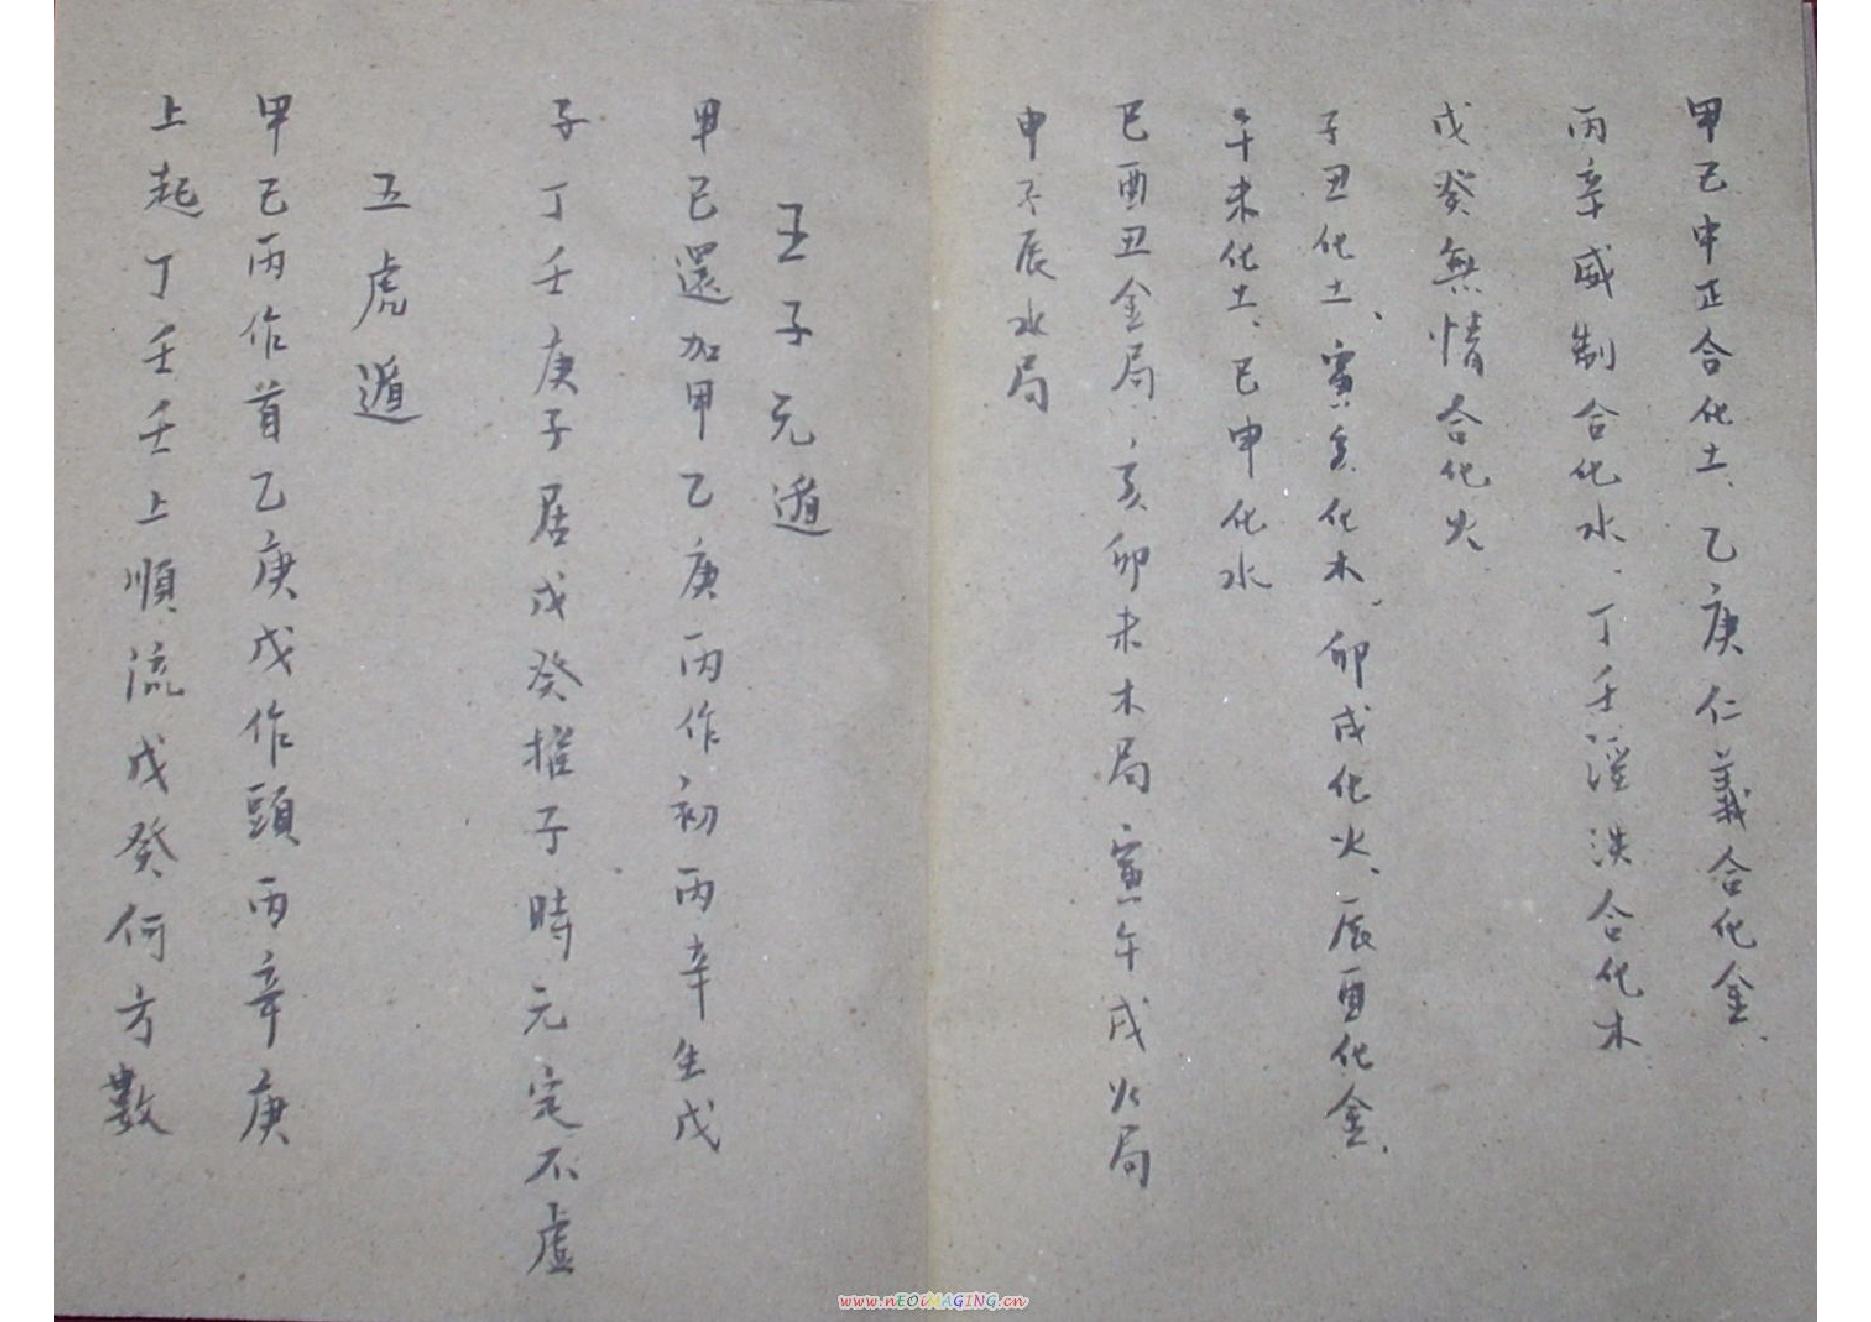 甲己中正合化土、乙庚仁義合化金、
丙辛威制合化水、丁壬淫泆合化木
戊癸無情合化火、
子丑化土、寅亥化木、卯戌化火、辰酉化金、
午未化土、巳申化水
巳酉丑金局、亥卯未木局寅午戌火局
申子辰水局
五子元遁
甲己還加甲乙庚丙作初丙辛生戊
子丁壬庚子居戊癸推子時元定不虛
五虎遁
甲己丙作首乙庚戊作頭丙辛庚
上起丁壬壬上順流戊癸何方數
www.nEOiMAGING.cn